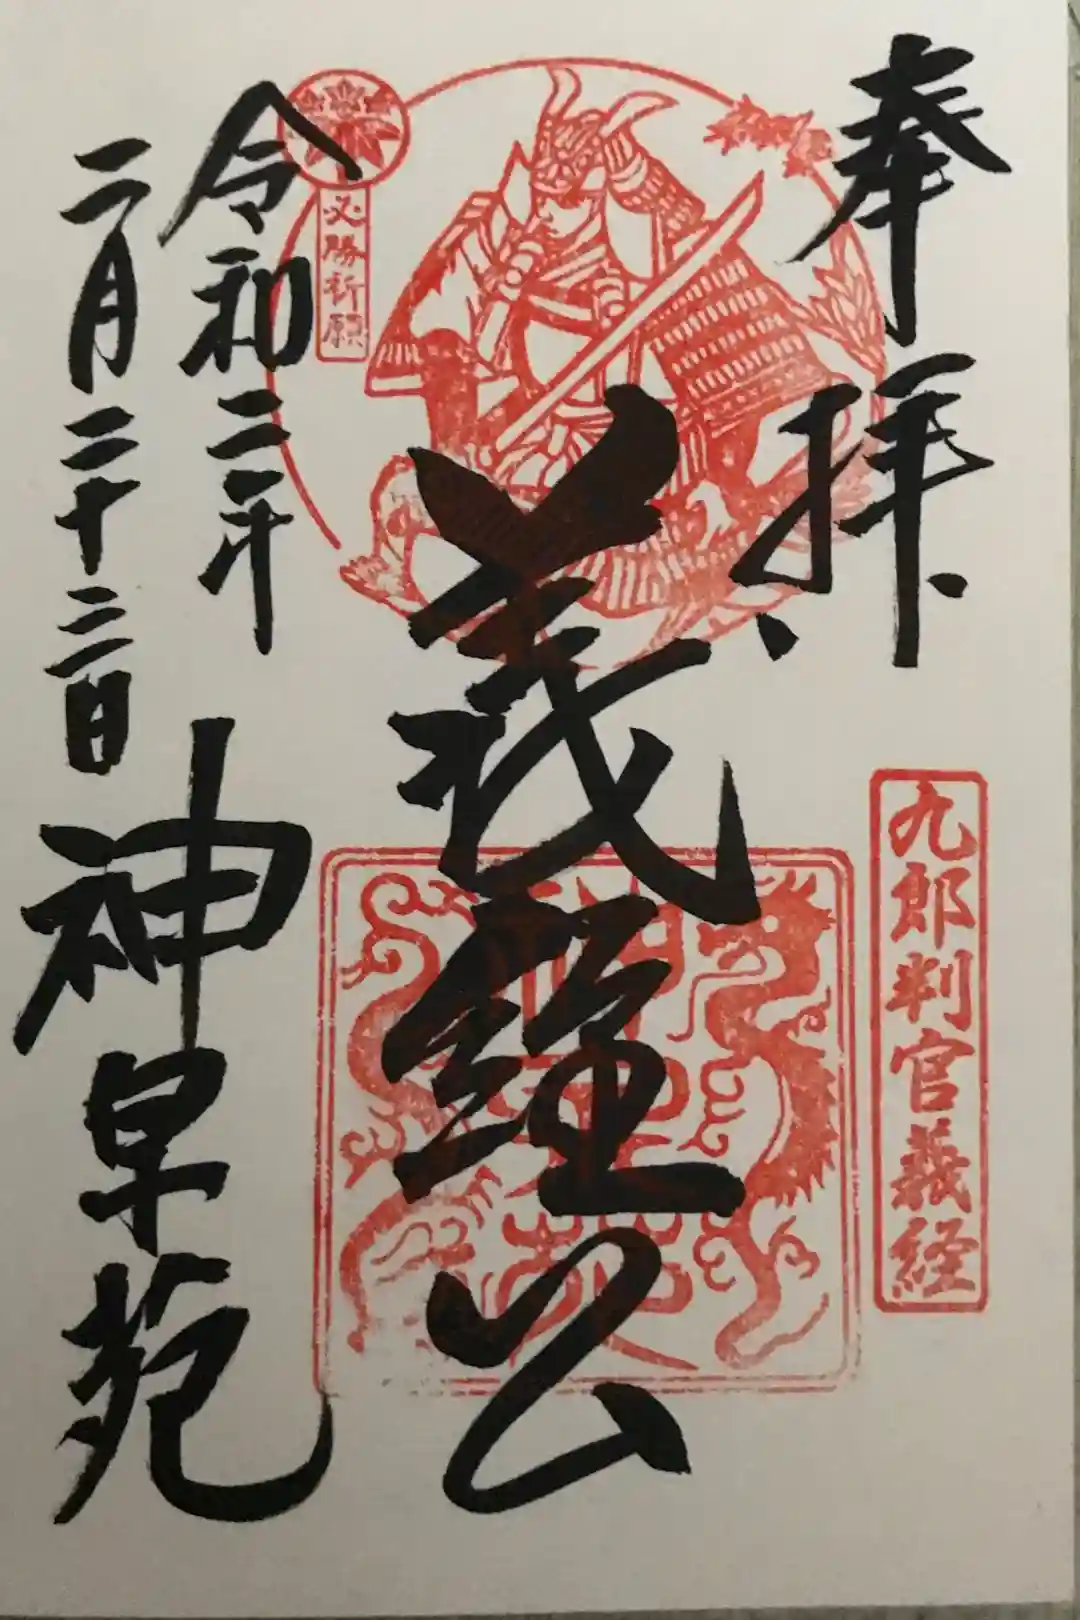 奉拝
九郎判官義経
義経公
必勝祈願
令和二年
二月二十三日
神早苑